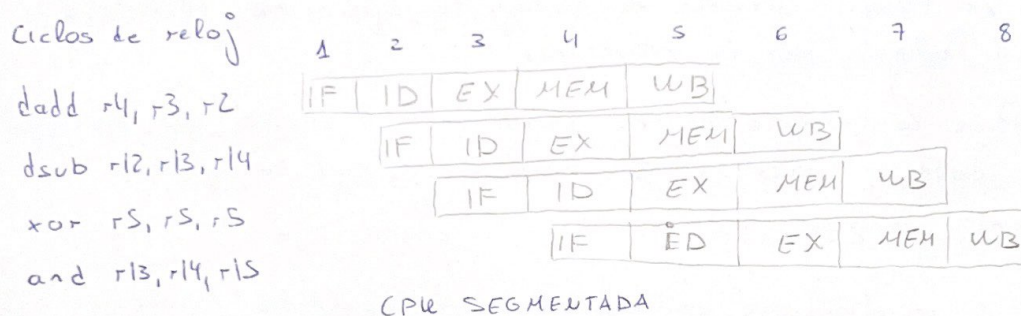 Ciclos de reloj 1 2 3 4 5 6 7 8
dadd r4, r3, r2 IF ID EX MEM WB
dsub r12, r13, r14 IF ID EX MEM WB
xor r5, r5, r5 IF ID EX MEM WB
and r13, r14, r15 IF ID EX MEM WB
CPU SEGMENTADA